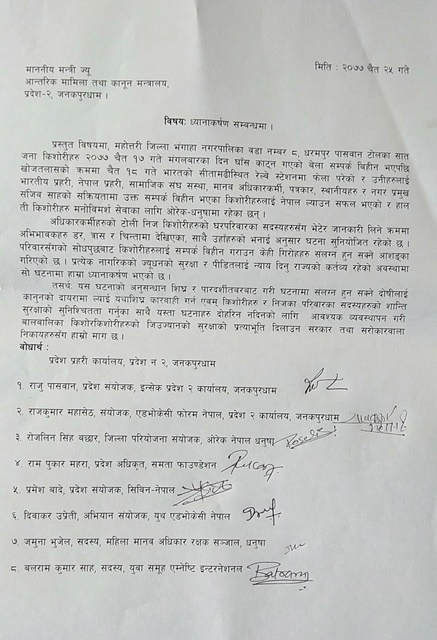 माननीय मन्त्री ज्यू
मिति : २०७७ चैत २५ गते
आन्तरिक मामिला तथा कानून मन्त्रालय,
प्रदेश-२, जनकपुरधाम ।
विषय: ध्यानाकर्षण सम्बन्धमा ।
प्रस्तुत विषयमा, महोत्तरी जिल्ला भंगाहा नगरपालिका वडा नम्बर ८, धरमपुर पासवान टोलका सात
जना किशोरीहरु २०७७ चैत १७ गते मंगलबारका दिन घाँस काट्न गएको बेला सम्पर्क बिहीन भएपछि
खोजतलासको क्रममा चैत १८ गते भारतको सीतामढीस्थित रेल्वे स्टेशनमा फेला परेको र उनीहरुलाई
भारतीय प्रहरी, नेपाल प्रहरी, सामाजिक संघ सस्था, मानव अधिकारकर्मी, पत्रकार, स्थानीयहरु र नगर प्रमुख
सजिव साहको सक्रियतामा उक्त सम्पर्क बिहीन भएका किशोरीहरुलाई नेपाल ल्याउन सफल भएको र हाल
ती किशोरीहरु मनोविमर्श सेवाका लागि ओरेक-धनुषामा रहेका छन् ।
अधिकारकर्मीहरुको टोली निज किशोरीहरुको घरपरिवारका सदस्यहरुसँग भेटेर जानकारी लिने क्रममा
अभिभावकहरु डर, त्रास र चिन्तामा देखिएका, साथै उहाँहरुको भनाई अनुसार घटना सुनियोजित रहेको छ ।
परिवारसँगको सोधपुछबाट किशोरीहरुलाई सम्पर्क बिहीन गराउन केही गिरोहहरु संलग्न हुन सक्ने आशङ्का
गरिएको छ । प्रत्येक नागरिकको ज्यूधनको सुरक्षा र पीडितलाई न्याय दिनु राज्यको कर्तव्य रहेको अवस्थामा
सो घटनामा हाम्रो ध्यानाकर्षण भएको छ ।
तसर्थ: यस घटनाको अनुसन्धान शिघ्र र पारदर्शीतवरबाट गरी घटनामा सलग्न हुन सक्ने दोषीलाई
कानूनको दायरामा ल्याई यथाशिघ्र कारवाही गर्न एवम् किशोरीहरु र निजका परिवारका सदस्यहरुको शान्ति
सुरक्षाको सुनिश्चितता गर्नुका साथै यस्ता घटनाहरु दोहरिन नदिनको लागि आवश्यक व्यवस्थापन गरी
बालबालिका किशोरकिशोरीहरुको जिउज्यानको सुरक्षाको प्रत्याभूति दिलाउन सरकार तथा सरोकारवाला
निकायहरुसँग हाम्रो माग छ ।
बोधार्थ :
प्रदेश प्रहरी कार्यालय, प्रदेश न २, जनकपुरधाम
१. राजु पासवान, प्रदेश संयोजक, इन्सेक प्रदेश २ कार्यालय, जनकपुरधाम
२. राजकुमार महासेठ, संयोजक, एडभोकेसी फोरम नेपाल, प्रदेश २ कार्यालय, जनकपुरधाम
३. रोजलिन सिंह बछार, जिल्ला परियोजना संयोजक, ओरेक नेपाल धनुषा
४. राम पुकार महरा, प्रदेश अधिकृत, समता फाउण्डेसन
५. प्रमेश बादे, प्रदेश संयोजक, सिविन-नेपाल
६. दिवाकर उप्रेती, अभियान संयोजक, युथ एडभोकेसी नेपाल
७. जमुना भुजेल, सदस्य, महिला मानव अधिकार रक्षक सञ्जाल, धनुषा
८. बलराम कुमार साह, सदस्य, युवा समूह एम्नेष्टि इन्टरनेशनल